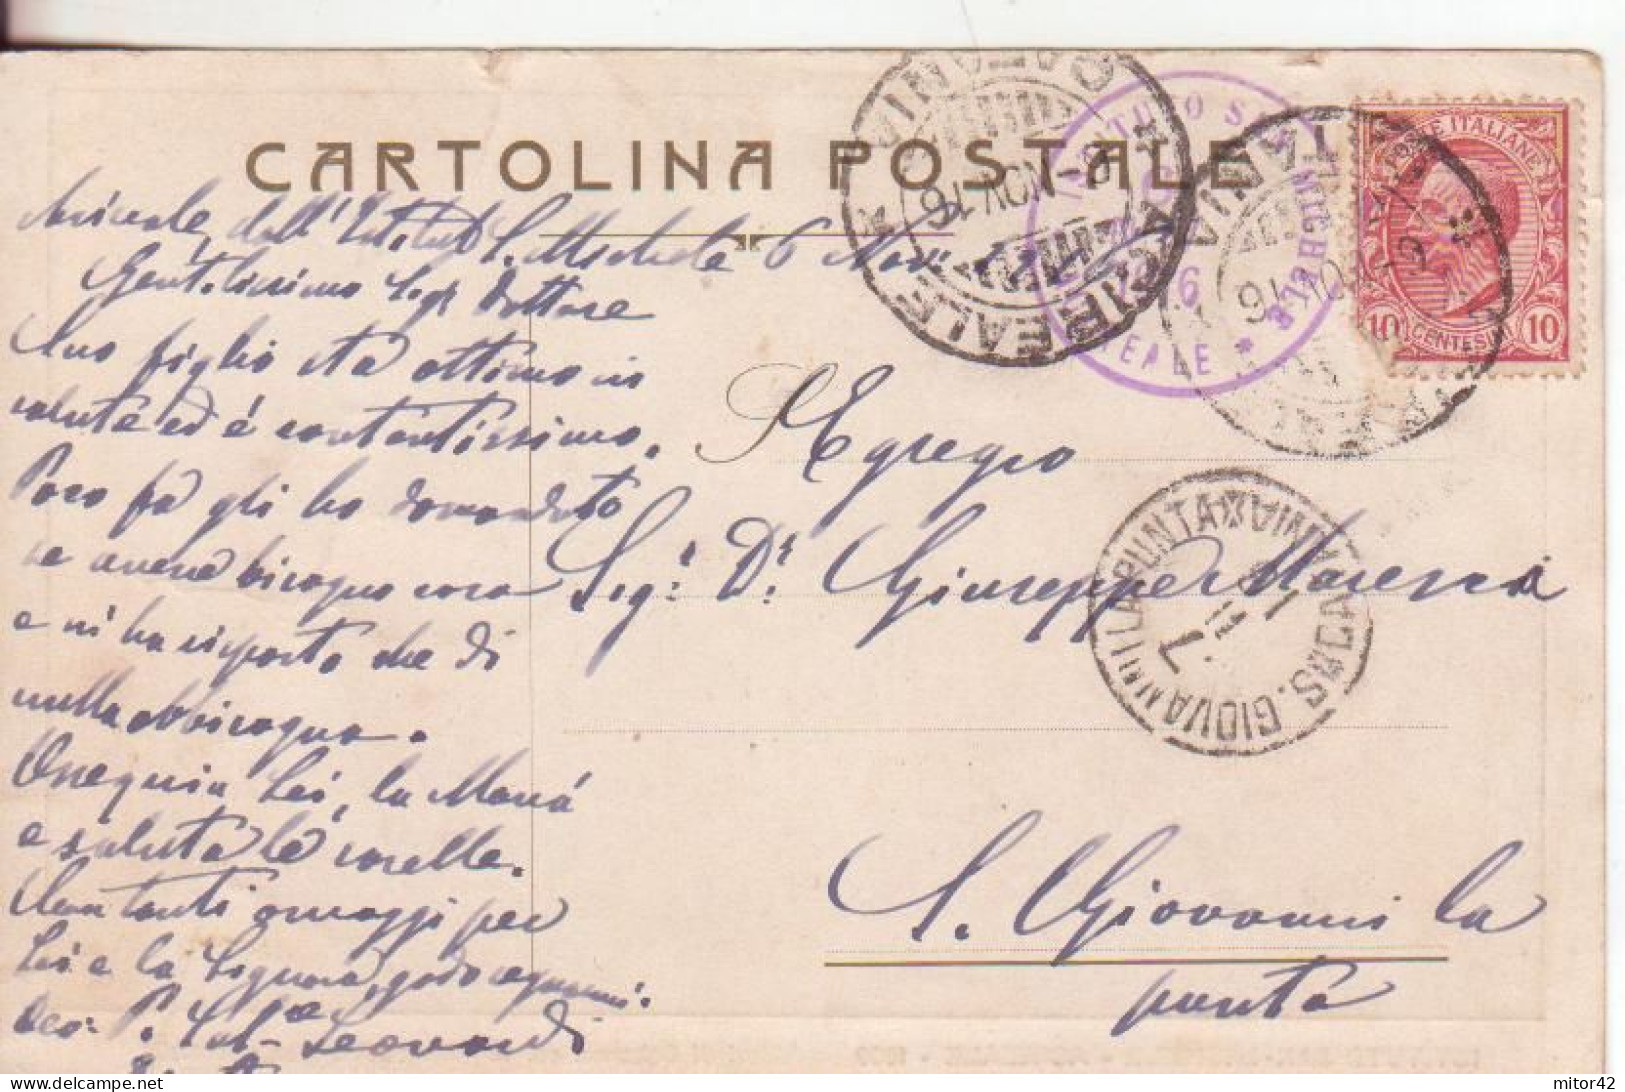 CARTOLINA POSTALE
Acireale, dall'Istituto S. Michele 6 Nov.
Gentilissimo Sig. Dottore
Suo figlio sta ottimo in
salute ed è contentissimo.
Poco fa gli ho domandato
se avesse bisogno cosa
e mi ha risposto che di
nulla abbisogna.
Ossequia Lei, la Mamá
e saluta le sorelle.
Tanti omaggi per
Lei e la Signora, godo segnarmi.
Dev. P. Salv. Leonardi
Egregio
Sig. Dr. Giuseppe
S. Giovanni la
punta
ACIREALE * CATANIA *
6-NOV 16
ISTITUTO SAN MICHELE *
POSTE ITALIANE
10 CENTESIMI 10
S. GIOVANNI LA PUNTA * CATANIA *
mitor42